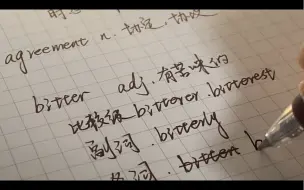 agreement n. 协定,协议
bitter adj. 有苦味的
比较级 bitterer bitterest
副词. bitterly
名词. bitter b